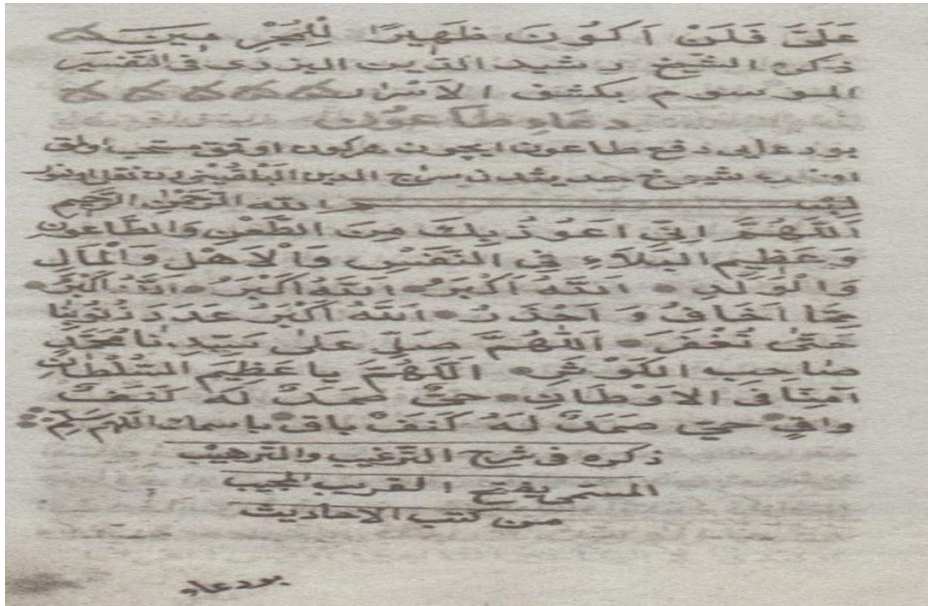 عَلَىَّ فَلَنْ اَكُونَ ظَهِيرًا لِلْمُجْرِمِينَ
ذكره الشيخ رشيد الدين اليزدى فى التفسير
الموسوم بكشف الاسرار
دعاء طاعون
بو دعايى دفع طاعون ايچون هركون اوقومق مستحب اولمق
شيوخ حديثدن سراج الدين البلقينيدن نقل
الله الرحمن الرحيم
اَللّٰهُمَّ اِنِّى اَعُوذُ بِكَ مِنَ الطَّعْنِ وَالطَّاعُونِ
وَعَظِيمِ الْبَلَاءِ فِي النَّفْسِ وَالْاَهْلِ وَالْمَالِ
وَالْوَلَدِ اَللهُ اَكْبَرُ اَللهُ اَكْبَرُ اَللهُ اَكْبَرُ
مِمَّا اَخَافُ وَ اَحْذَرُ اَللهُ اَكْبَرُ عَدَدَ ذُنُوبِنَا
حَتَّى تُغْفَرَ اَللّٰهُمَّ صَلِّ عَلٰى سَيِّدِنَا مُحَمَّدٍ
صَاحِبِ الْكَوْثَرِ اَللّٰهُمَّ يَا عَظِيمَ السُّلْطَانِ
آمِنَّا فِى الْاَوْطَانِ حَيٌّ صَمَدٌ لَهُ كَنَفٌ
وَاقٍ حَيٌّ صَمَدٌ لَهُ كَنَفٌ بَاقٍ
ذكره فى شرح الترغيب والترهيب
المسمى بفتح القريب المجيب
من كتب الاحاديث
بو دعاء